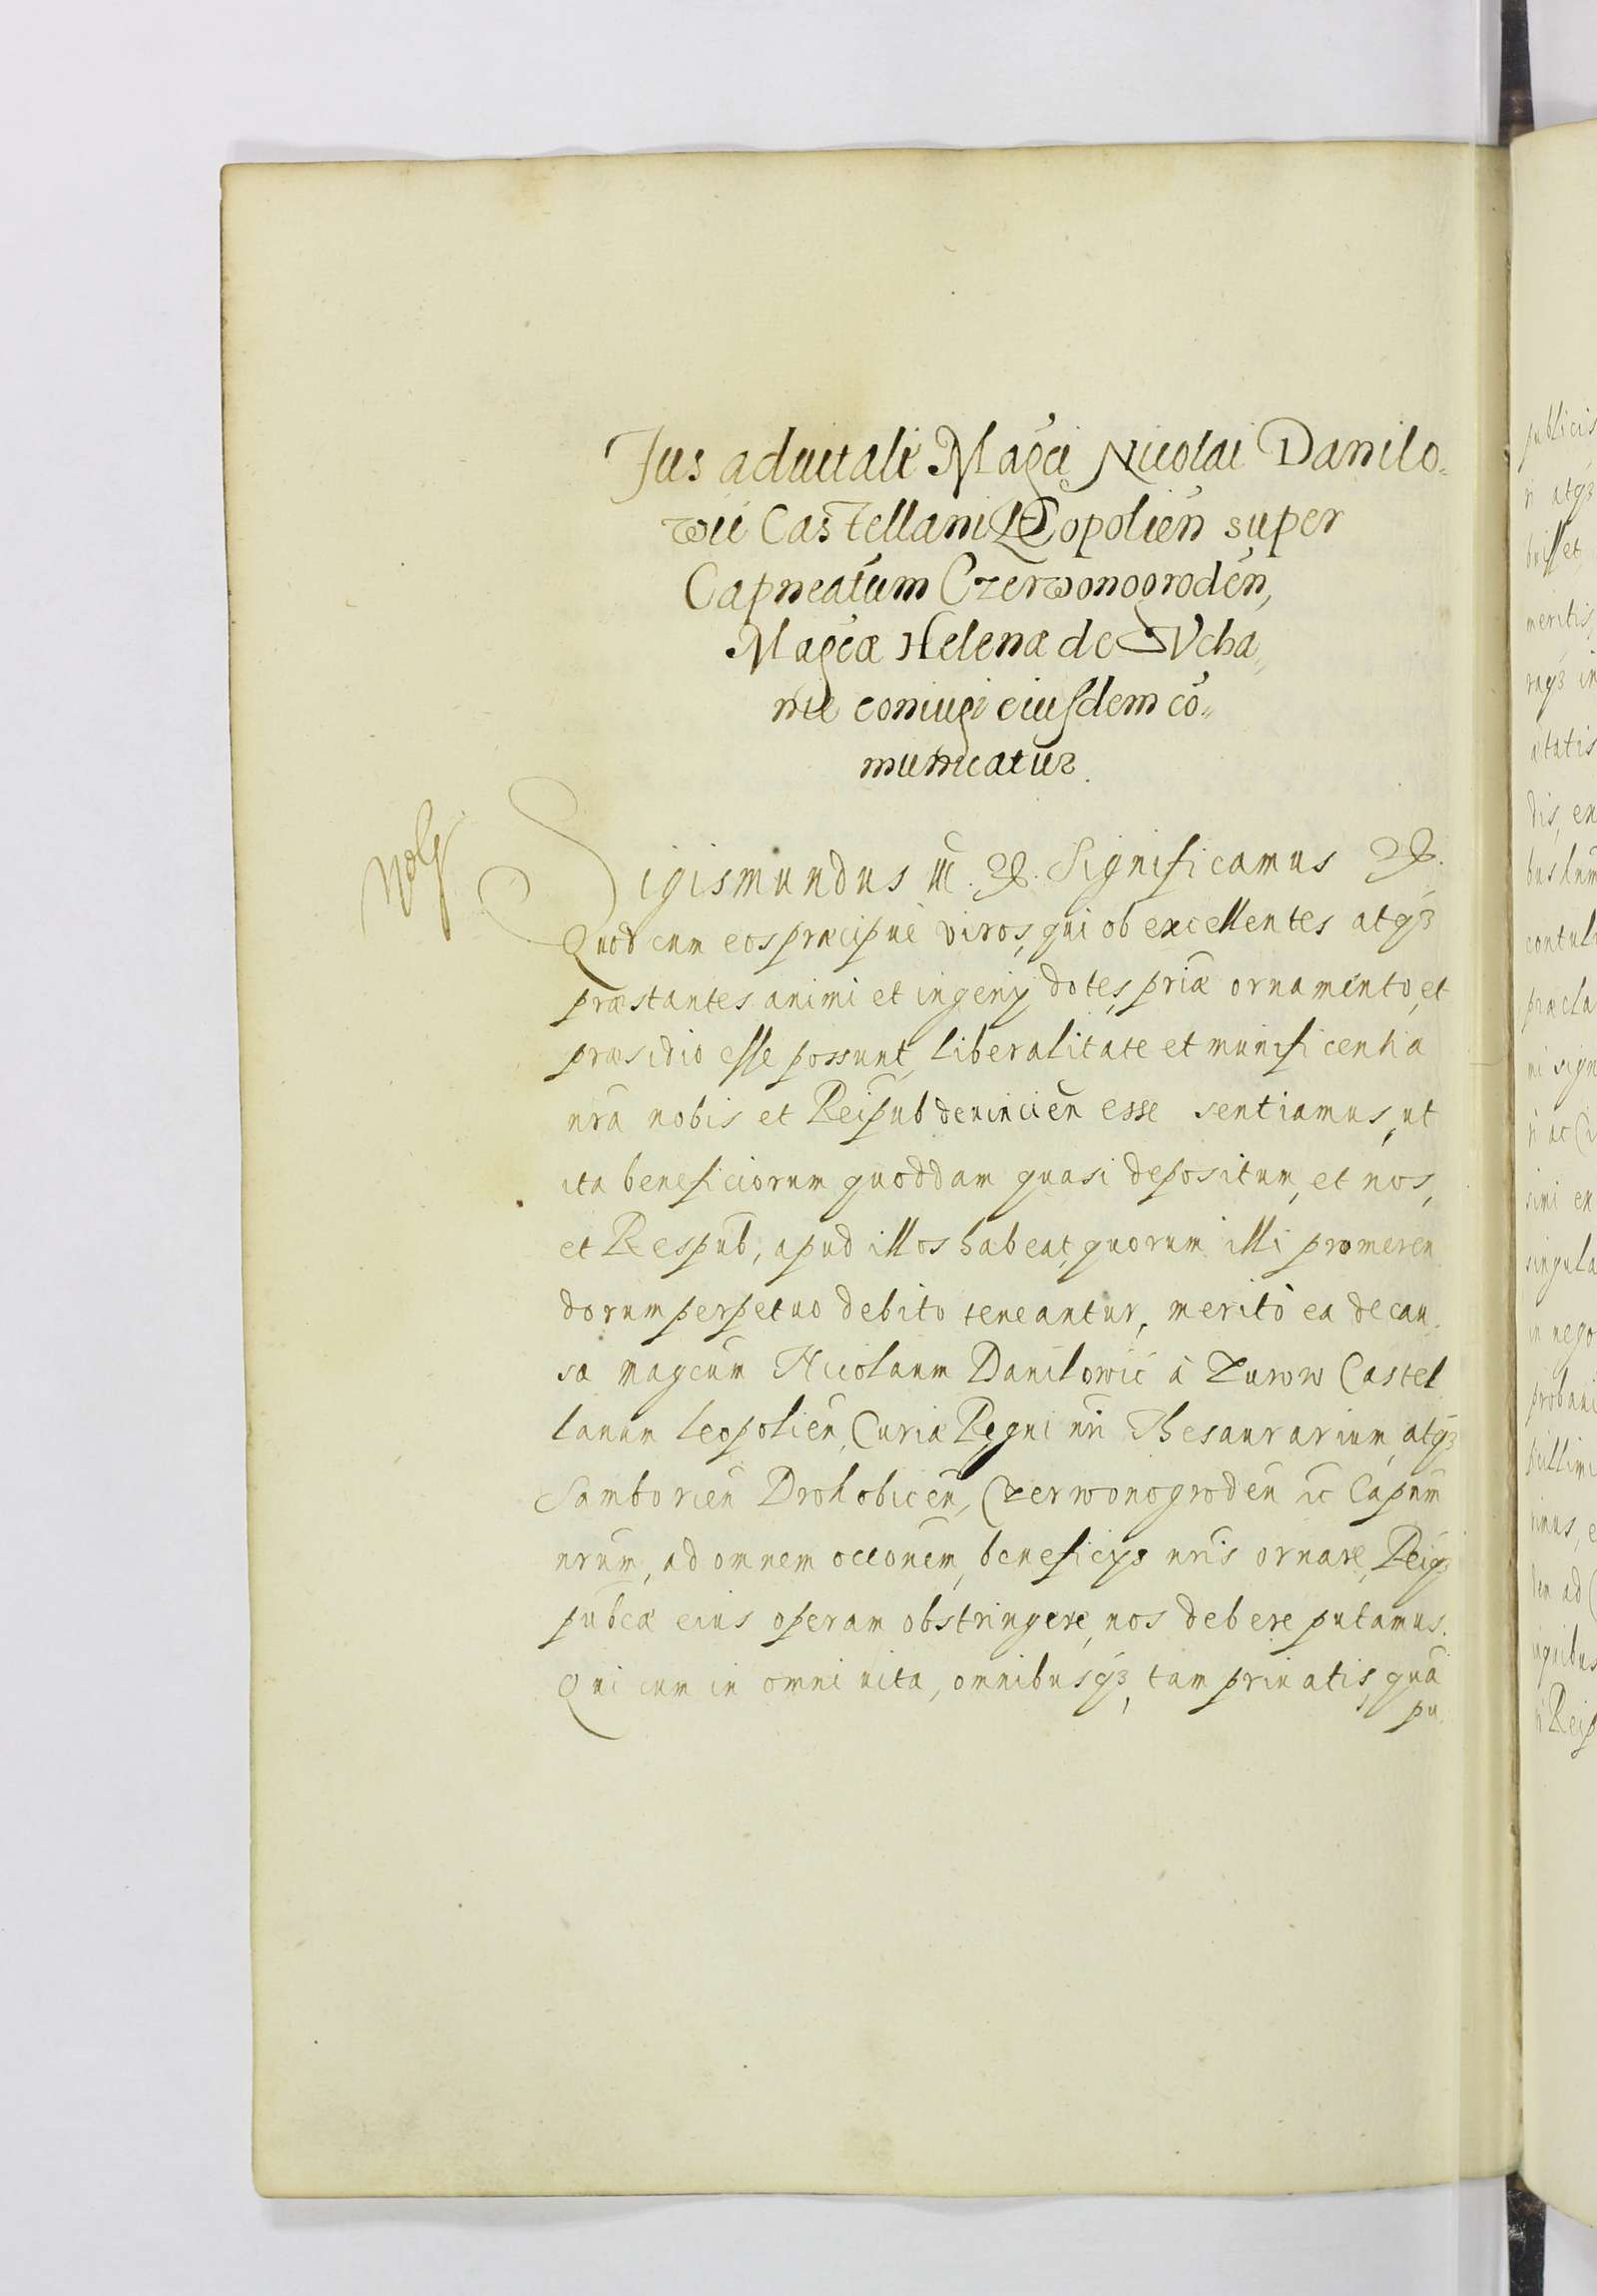 Jus aduitale Magci Nicolai Danilo-
wii Castellani Leopolien super
Capneatum Czerwonogroden,
Magcæ Helenæ de Vcha-
nie coniugi eiusdem co-
municatur.
Sigismundus III. Significamus
Quod cum eos præcipuè viros, qui ob excellentes atq3
præstantes animi et ingenij dotes, priæ ornamento, et
præsidio esse possunt, liberalitate et munificentia
nra nobis et Reipub deuincien esse sentiamus, ut
ita beneficiorum quoddam quasi depositum, et nos,
et Respub, apud illos habeat, quorum illi promeren
dorum perpetuo debito teneantur, meritò ea de cau-
sa magcum Nicolaum Danilowic à Zurow Castel
lanum Leopolien, Curiæ Regni nri Thesaurarium, atq3
Samborien Drohobicen, Czerwonogroden ac Capnum
nrum, ad omnem occonem, beneficijs nris ornare, Reiq3
pubcæ eius operam obstringere, nos debere putamus.
Qui cum in omni uita, omnibusq3, tam priuatis, quà
pu-
publicis
ri atq3
buisset
meritis,
raq3 in
ætatis
dis, en
bus
contuli
præcla
mi sign
simi en
singula
in nego
den ad